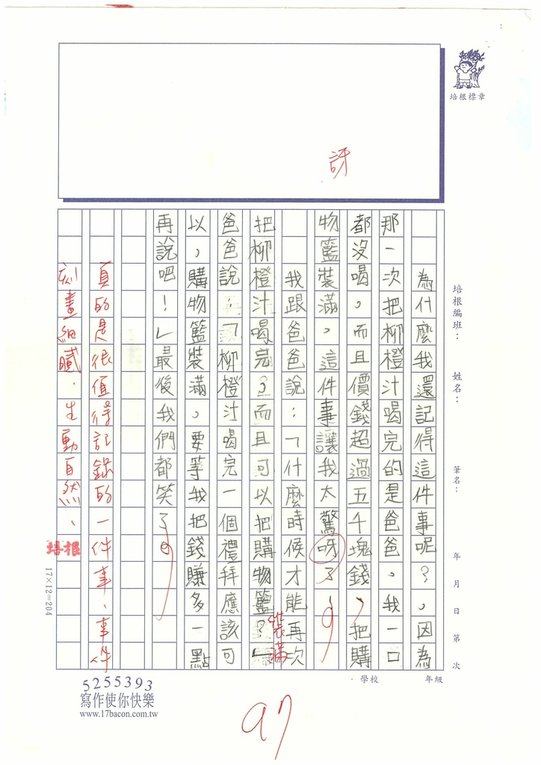 培根標章
培根編班： 姓名： 筆名： 年 月 日 第 次
為什麼我還記得這件事呢？。因為
那一次把柳橙汁喝完的是爸爸。我一口
都沒喝。而且價錢超過五千塊錢，把購
物籃裝滿。這件事讓我太驚呀了。
訝
我跟爸爸說：「什麼時候才能再次
把柳橙汁喝完？而且可以把購物籃？」
裝滿
爸爸說：「柳橙汁喝完一個禮拜應該可
以，購物籃裝滿。要等我把錢賺多一點
再說吧！」最後我們都笑了。
真的是很值得記錄的一件事、事件
刻畫細膩，生動自然、
培根
17×12=204
學校 年級
5255393
寫作使你快樂
www.17bacon.com.tw
97